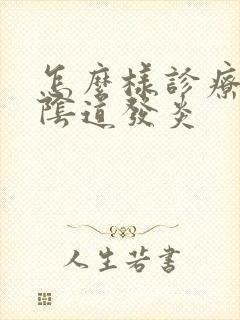 怎麼樣診療
陰道發炎
人生若書